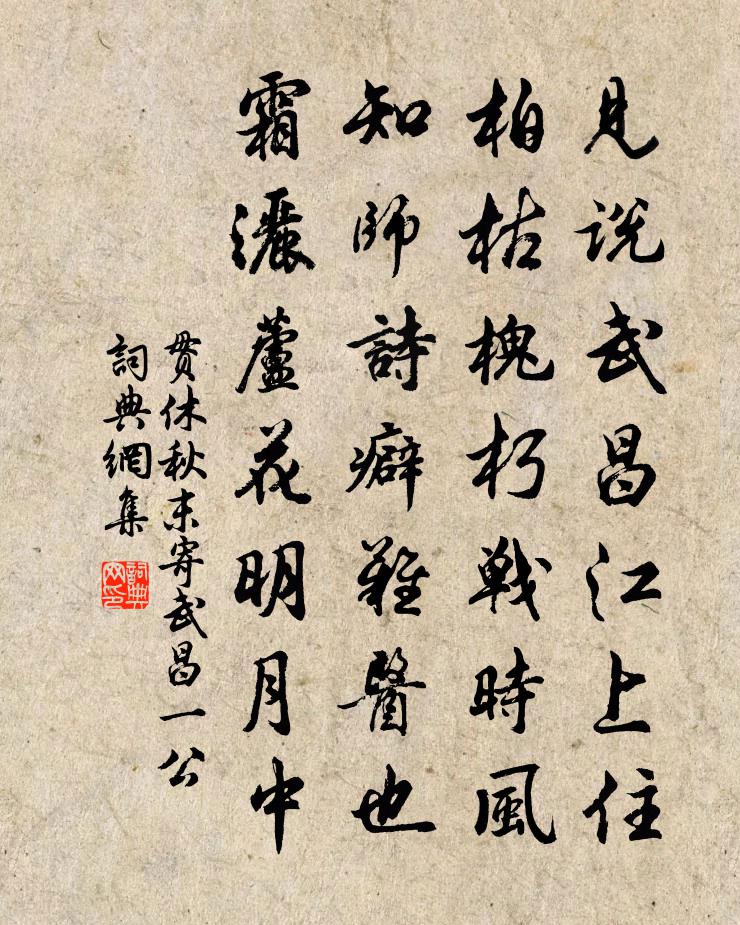 見説武昌江上住
柏枯槐朽戰時風
知師詩癖難醫也
霜灑蘆花明月中
貫休秋末寄武昌一公
詞典網集
詞典网印